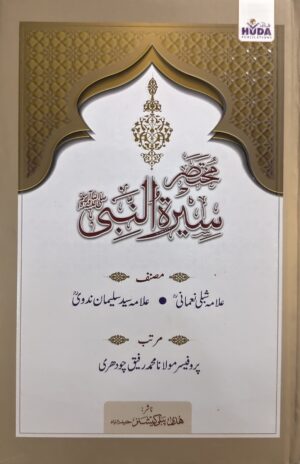 HUDA
PUBLICATIONS
مختصر
سیرۃ النبی ﷺ
مصنف
علامہ شبلی نعمانیؒ • علامہ سید سلیمان ندویؒ
مرتب
پروفیسر مولانا محمد رفیق چودھری
ناشر:
ھدیٰ پبلی کیشنز حیدرآباد